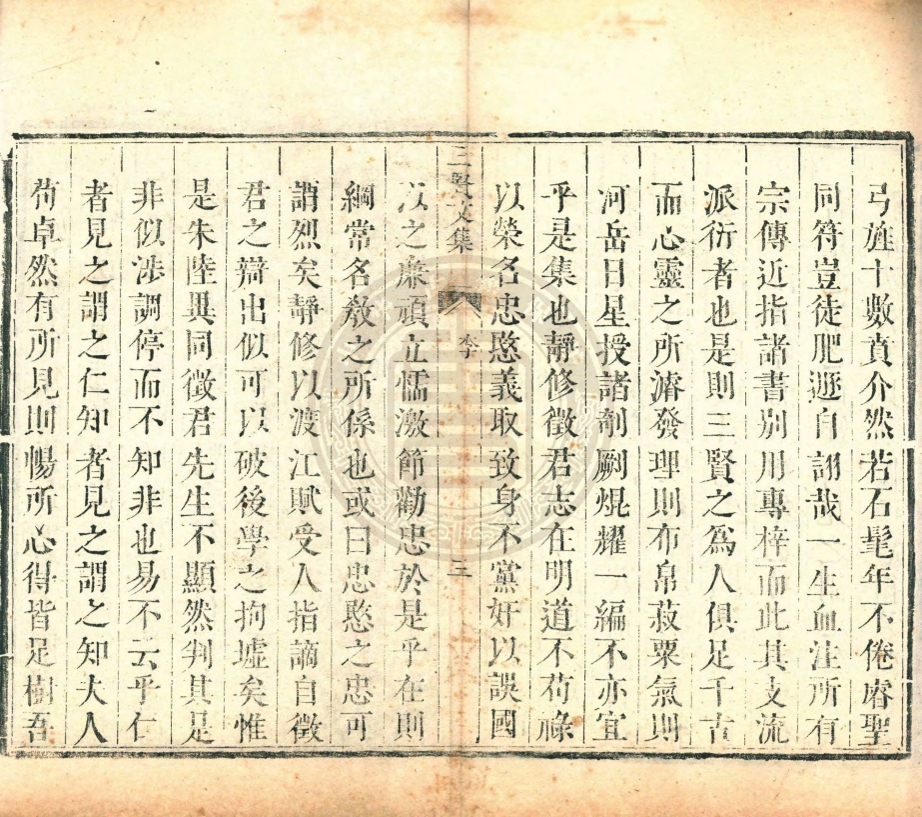 弓旌十數賁介然若石髦年不倦睿聖
同符豈徒肥遯自詡哉一生血注所有
宗傳近指諸書別用專梓而此其支流
派衍者也是則三賢之為人俱足千古
而心靈之所濬發理則布帛菽粟氣則
河岳日星授諸剞劂焜耀一編不亦宜
乎是集也靜修徵君志在明道不苟祿
以榮名忠愍義取致身不黨奸以誤國
三賢文集
李
三
以之廉頑立懦激節勸忠於是乎在則
綱常名教之所係也或曰忠愍之忠可
謂烈矣靜修以渡江賦受人指謫自徵
君之辯出似可以破後學之拘墟矣惟
是朱陸異同徵君先生不顯然判其是
非似涉調停而不知非也易不云乎仁
者見之謂之仁知者見之謂之知大人
苟卓然有所見則暢所心得皆足樹吾